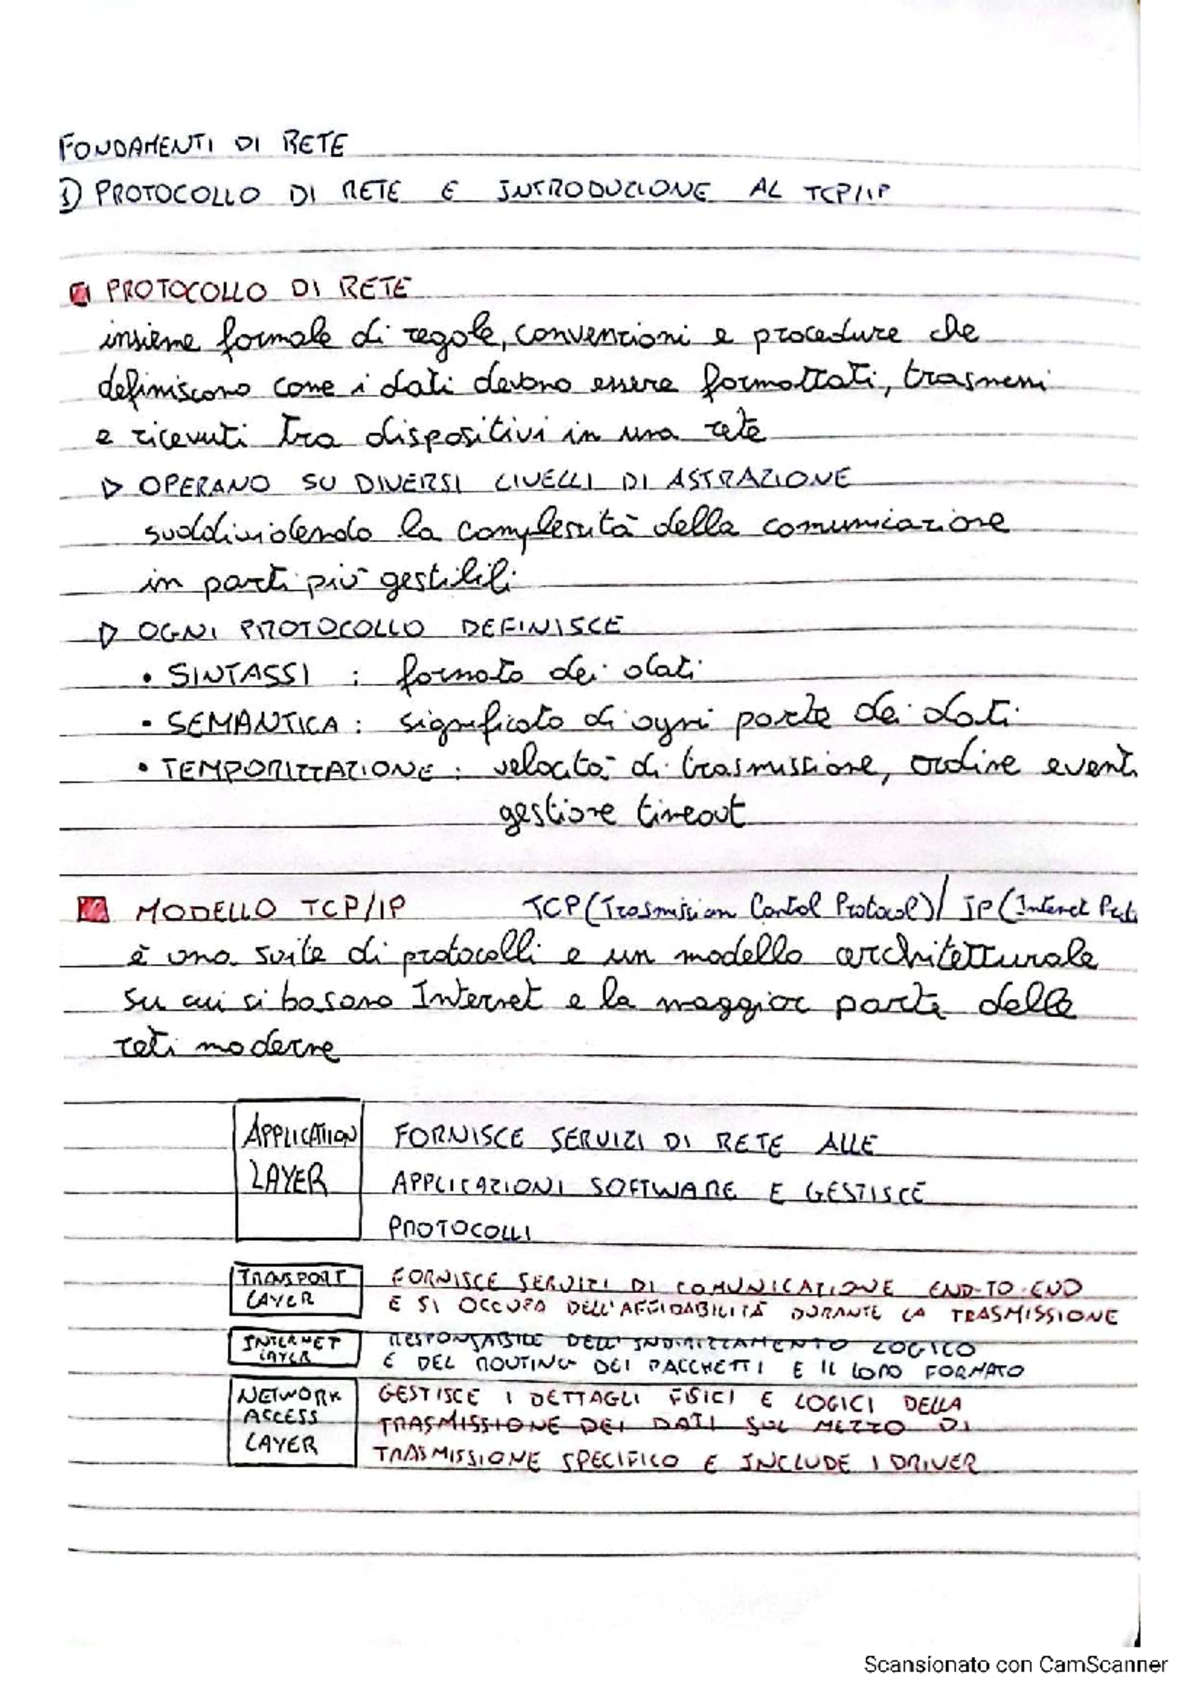 FONDAMENTI DI RETE
1) PROTOCOLLO DI RETE E INTRODUZIONE AL TCP/IP
PROTOCOLLO DI RETE
insieme formale di regole, convenzioni e procedure che
definiscono come i dati devono essere formattati, trasmessi
e ricevuti tra dispositivi in una rete
▷ OPERANO SU DIVERSI LIVELLI DI ASTRAZIONE
suddividendo la complessità della comunicazione
in parti più gestibili
▷ OGNI PROTOCOLLO DEFINISCE
• SINTASSI : formato dei dati
• SEMANTICA : significato di ogni parte dei dati
• TEMPORIZZAZIONE : velocità di trasmissione, ordine eventi
gestione timeout
MODELLO TCP/IP TCP (Trasmission Control Protocol) / IP (Internet
è una suite di protocolli e un modello architetturale
su cui si basano Internet e la maggior parte delle
reti moderne
APPLICATION FORNISCE SERVIZI DI RETE ALLE
LAYER APPLICAZIONI SOFTWARE E GESTISCE
PROTOCOLLI
TRANSPORT FORNISCE SERVIZI DI COMUNICAZIONE END-TO-END
LAYER E SI OCCUPA DELL'AFFIDABILITÀ DURANTE LA TRASMISSIONE
INTERNET RESPONSABILE DELL'INDIRIZZAMENTO LOGICO
LAYER E DEL ROUTING DEI PACCHETTI E IL LORO FORMATO
NETWORK GESTISCE I DETTAGLI FISICI E LOGICI DELLA
ACCESS TRASMISSIONE DEI DATI SUL MEZZO DI
LAYER TRASMISSIONE SPECIFICO E INCLUDE I DRIVER
Scansionato con CamScanner